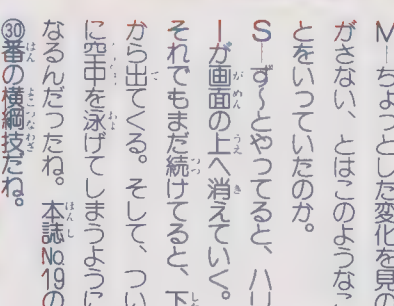 M─ちょっとした変化を見の
がさない、とはこのような
とをいっていたのか。
S─ず〜とやってると、ハリ
ーが画面の上へ消えていく。
それでもまだ続けてると、下
から出てくる。そして、つい
に空中を泳げてしまうように
なるんだったね。本誌No.19の
㉚番の横綱技だね。